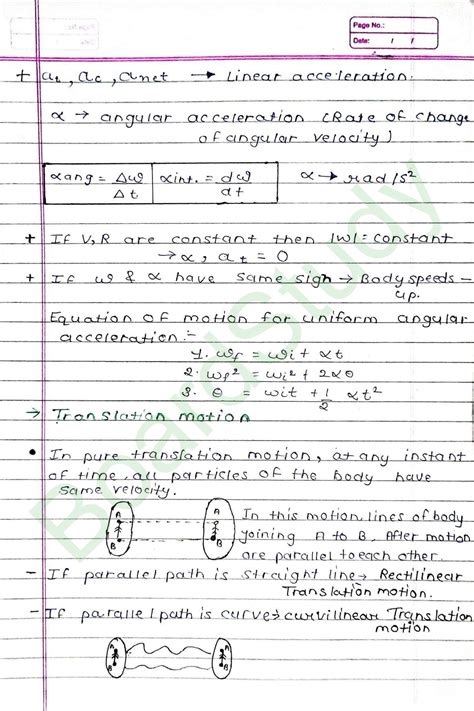 Page No.:
Date: / /
+ at, ac, anet → Linear acceleration.
α → angular acceleration (Rate of change
of angular velocity)
αang = Δω/Δt αint. = dω/dt α → rad/s²
+ If V, R are constant then |ω| = constant
→ α, at = 0
+ If ω & α have same sign → Body speeds-
up.
Equation of motion for uniform angular
acceleration:-
1. ωf = ωi + αt
2. ωf² = ωi² + 2αθ
3. θ = ωit + 1/2 αt²
→ Translation motion
• In pure translation motion, at any instant
of time, all particles of the body have
same velocity.
A A In this motion, lines of body
joining A to B, After motion
B B are parallel to each other.
- If parallel path is straight line → Rectilinear
Translation motion.
- If parallel path is curve → curvilinear Translation
motion
A A
B B
BoardStudy